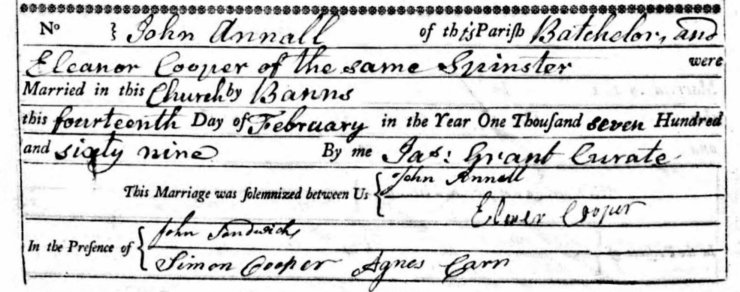 No } John Annall of this Parish Batchelor, and
Eleanor Cooper of the same Spinster were
Married in this Church by Banns
this fourteenth Day of February in the Year One Thousand seven Hundred
and sixty nine By me Jas: Grant Curate
This Marriage was solemnized between Us { John Annall
Elner Cooper
In the Presence of { John Sandwich
Simon Cooper Agnes Carn